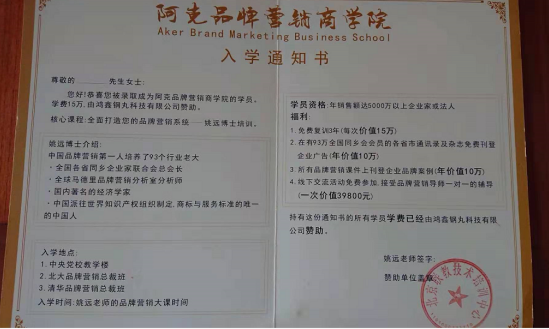 阿克品牌营销商学院
Aker Brand Marketing Business School
入学通知书
尊敬的 先生女士:
您好!恭喜您被录取成为阿克品牌营销商学院的学员,
学费15万,由鸿鑫钢丸科技有限公司赞助。
核心课程:全面打造您的品牌营销系统——姚远博士培训。
姚远博士介绍:
中国品牌营销第一人培养了93个行业老大
·全国各省同乡企业家联合会总会长
·全球马德里品牌营销分析室分析师
·国内著名的经济学家
·中国派往世界知识产权组织制定,商标与服务标准的唯一
的中国人
入学地点:
1.中央党校教学楼
2.北大品牌营销总裁班
3.清华品牌营销总裁班
入学时间:姚远老师的品牌营销大课时间
学员资格:年销售额达5000万以上企业家或法人
福利:
1.免费复训3年(每次价值15万)
2.在有93万全国同乡会会员的各省市通讯录及杂志免费刊登
企业广告(年价值10万)
3.所有品牌营销课件上刊登企业品牌案例(年价值10万)
4.线下交流活动免费参加,接受品牌营销导师一对一的辅导
(一次价值39800元)
持有这份通知书的所有学员学费已经由鸿鑫钢丸科技有限公
司赞助。
姚远老师签字:
赞助单位盖章:
技术培训中心